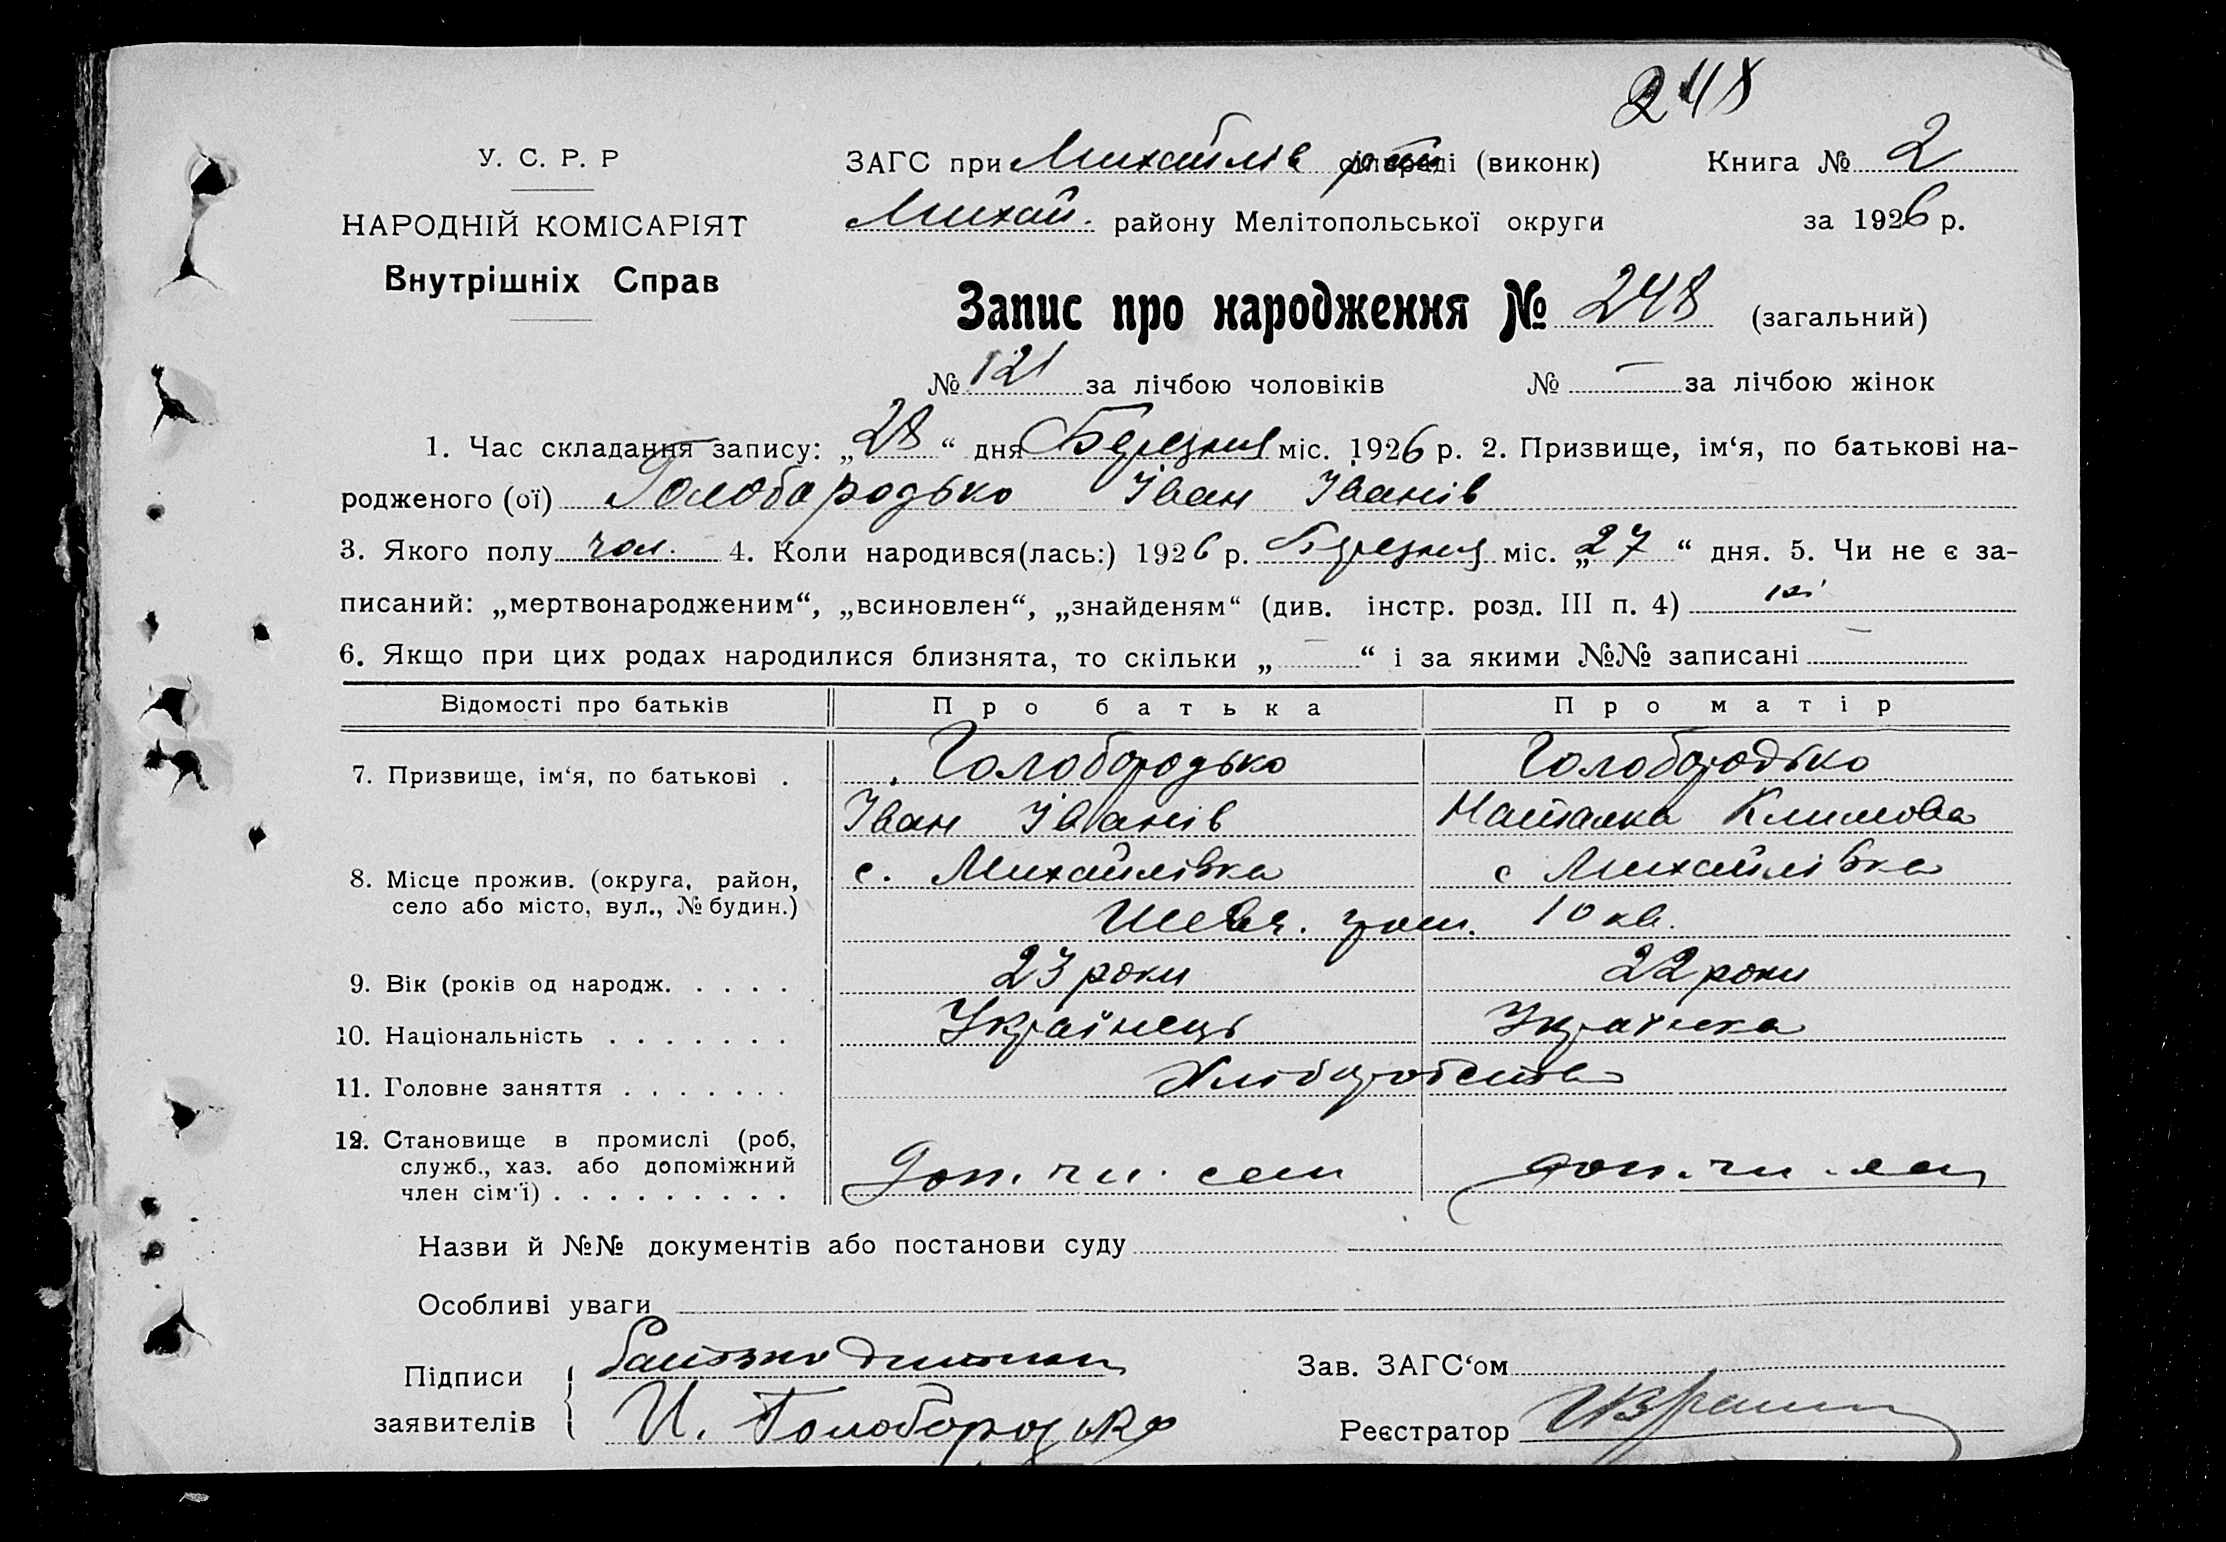 248
У. С. Р. Р
НАРОДНІЙ КОМІСАРІЯТ
Внутрішніх Справ
ЗАГС при Михайлів (виконк) Книга № 2
Михай. району Мелітопольської округи за 1926 р.
Запис про народження № 248 (загальний)
№ 121 за лічбою чоловіків № — за лічбою жінок
1. Час складання запису: „28“ дня Березня міс. 1926 р. 2. Призвище, ім‘я, по батькові на-
родженого (ої) Голобородько Іван Іванів
3. Якого полу чол. 4. Коли народився(лась:) 1926 р. Березня міс. „27“ дня. 5. Чи не є за-
писаний: „мертвонародженим“, „всиновлен“, „знайденям“ (див. інстр. розд. III п. 4) ні
6. Якщо при цих родах народилися близнята, то скільки „—“ і за якими №№ записані —
Відомості про батьків Про батька Про матір
7. Призвище, ім‘я, по батькові . Голобородько Голобородько
Іван Іванів Наталка Климова
8. Місце прожив. (округа, район, с. Михайлівка с Михайлівка
село або місто, вул., № будин.) Шевч. 10 кв.
9. Вік (років од народж. . . . . 23 роки 22 роки
10. Національність . . . . . . . Українець Українка
11. Головне заняття . . . . . . . Хліборобство
12. Становище в промислі (роб,
служб., хаз. або допоміжний доп. чл. сем доп. чл.
член сім‘ї) . . . . . . . . . .
Назви й №№ документів або постанови суду
Особливі уваги
Підписи батько дитини Зав. ЗАГС‘ом
заявителів И. Голобородько Реєстратор